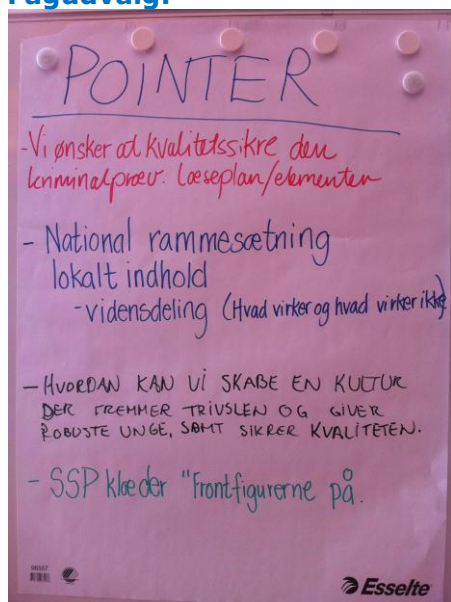 Fagudvalg:
POINTER
-Vi ønsker at kvalitetssikre den
kriminalpræv. læseplan/elementer
- National rammesætning
lokalt indhold
- vidensdeling (Hvad virker og hvad virker ikke)
- HVORDAN KAN VI SKABE EN KULTUR
DER FREMMER TRIVSLEN OG GIVER
ROBUSTE UNGE, SAMT SIKRER KVALITETEN.
- SSP klæder "Frontfigurerne på.
Esselte